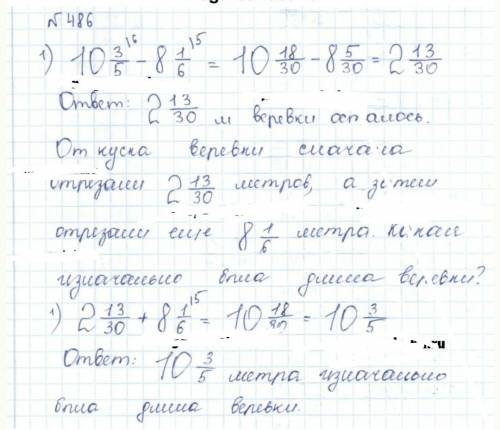 №486
1) 10 3/5 ¹⁶ - 8 1/6 ¹⁵ = 10 18/30 - 8 5/30 = 2 13/30
Ответ: 2 13/30 м веревки осталось.
От куска веревки сначала
отрезали 2 13/30 метров, а затем
отрезали еще 8 1/6 метра. Какая
изначально была длина веревки?
1) 2 13/30 + 8 1/6 ¹⁵ = 10 18/30 = 10 3/5
Ответ: 10 3/5 метра изначально
была длина веревки.